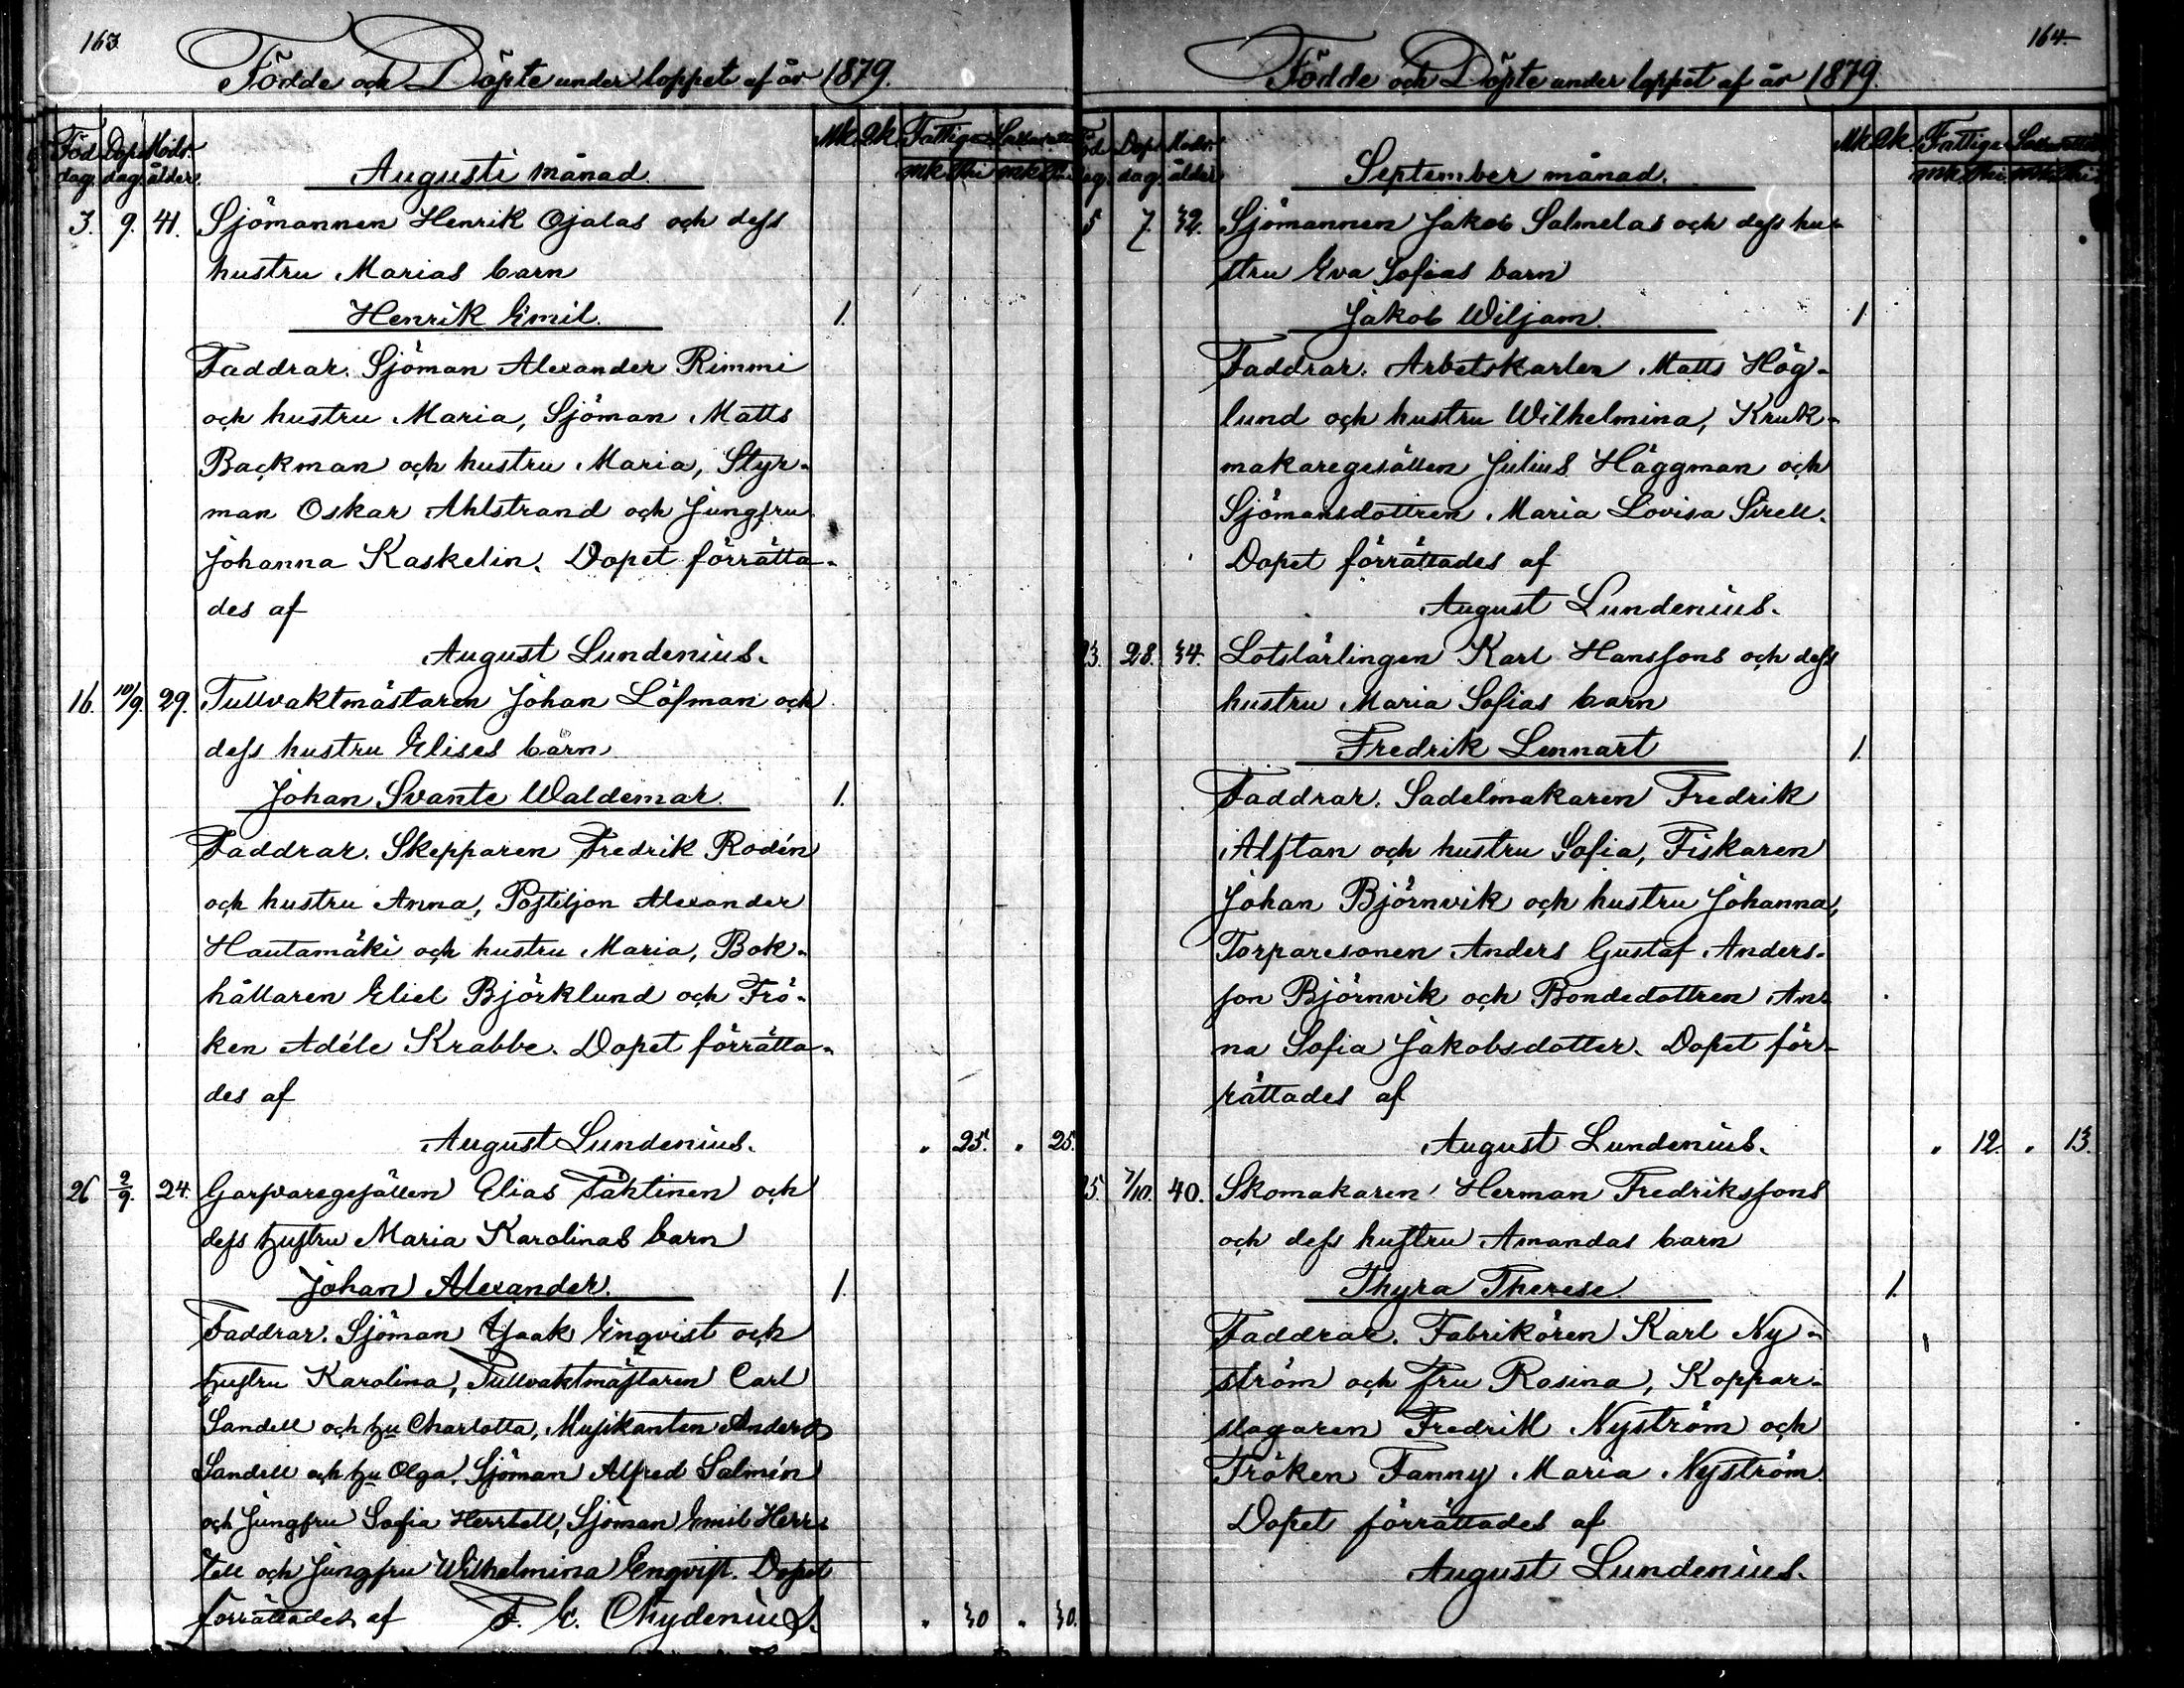 163
Födde och Döpte under loppet af år 1879.
Föd. dag. Dop. dag. Modr. ålder. Augusti månad. Mk. Qk. Fattige mk
3. 9. 41. Sjömannen Henrik Ojalas och dess
hustru Marias barn
Henrik Emil. 1.
Faddrar. Sjöman Alexander Rimmi
och hustru Maria, Sjöman Matts
Backman och hustru Maria, Styr-
man Oskar Ahlstrand och Jungfru
Johanna Kaskelin. Dopet förrätta-
des af
August Lundenius.
16. 10/9. 29. Tullvaktmästaren Johan Löfman och
dess hustru Elises barn
Johan Svante Waldemar. 1.
Faddrar. Skepparen Fredrik Rodén
och hustru Anna, Postiljon Alexander
Hautamäki och hustru Maria, Bok-
hållaren Eliel Björklund och Frö-
ken Adéle Krabbe. Dopet förrätta-
des af
August Lundenius. " 25. " 25.
26 2/9. 24. Garfvaregesällen Elias Täktinen och
dess hustru Maria Karolinas barn
Johan Alexander. 1.
Faddrar. Sjöman Isaak Enqvist och
hustru Karolina, Tullvaktmästaren Carl
Sandell och hu Charlotta, Musikanten Anders
Sandell och hu Olga, Sjöman Alfred Salmén
och Jungfru Sofia Herrtell, Sjöman Emil Herr-
tell och Jungfru Wilhelmina Enqvist. Dopet
förrättades af F. E. Chydenius. " 30 " 30.
164.
Födde och Döpte under loppet af år 1879.
Föd. dag. Dop. dag. Modr. ålder September månad. Mk. Qk. Fattige mk
5 7. 32. Sjömannen Jakob Salmelas och dess hu-
stru Eva Sofias barn
Jakob Wiljam. 1
Faddrar. Arbetskarlen Matts Hög-
lund och hustru Wilhelmina, Kruk-
makaregesällen Julius Häggman och
Sjömansdottren Maria Lovisa Sirell.
Dopet förrättades af
August Lundenius.
23. 28. 34. Lotslärlingen Karl Hanssons och dess
hustru Maria Sofias barn
Fredrik Lennart 1.
Faddrar. Sadelmakaren Fredrik
Alftan och hustru Sofia, Fiskaren
Johan Björnvik och hustru Johanna,
Torparesonen Anders Gustaf Anders-
son Björnvik och Bondedottren An-
na Sofia Jakobsdotter. Dopet för-
rättades af
August Lundenius. " 12. " 13.
25. 7/10. 40. Skomakaren Herman Fredrikssons
och dess hustru Amandas barn
Thyra Therese. 1.
Faddrar. Fabrikören Karl Ny-
ström och Fru Rosina, Koppar-
slagaren Fredrik Nyström och
Fröken Fanny Maria Nyström.
Dopet förrättades af
August Lundenius.